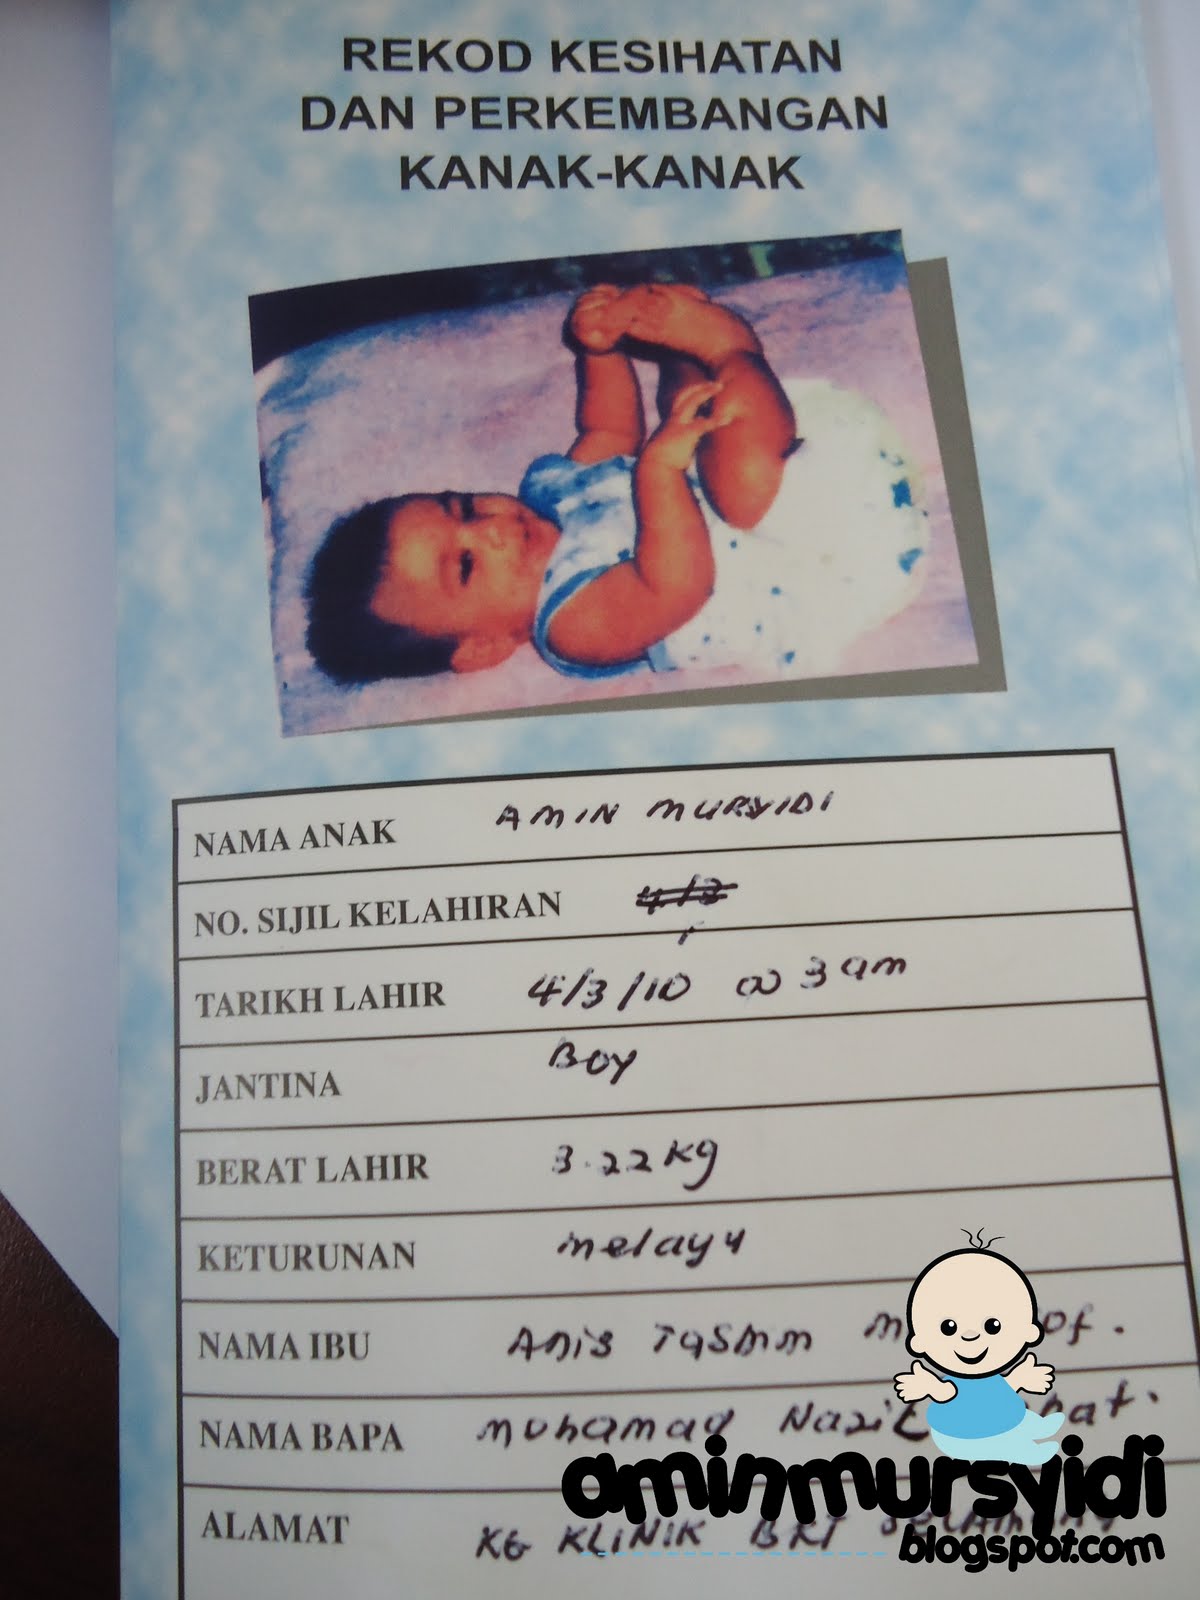 REKOD KESIHATAN
DAN PERKEMBANGAN
KANAK-KANAK
NAMA ANAK AMIN MURSYIDI
NO. SIJIL KELAHIRAN 4/3
TARIKH LAHIR 4/3/10 @ 3 am
JANTINA BOY
BERAT LAHIR 3.22 kg
KETURUNAN melayu
NAMA IBU Anis
NAMA BAPA Mohamad
ALAMAT KG KLINIK BKT
aminmursyidi
blogspot.com